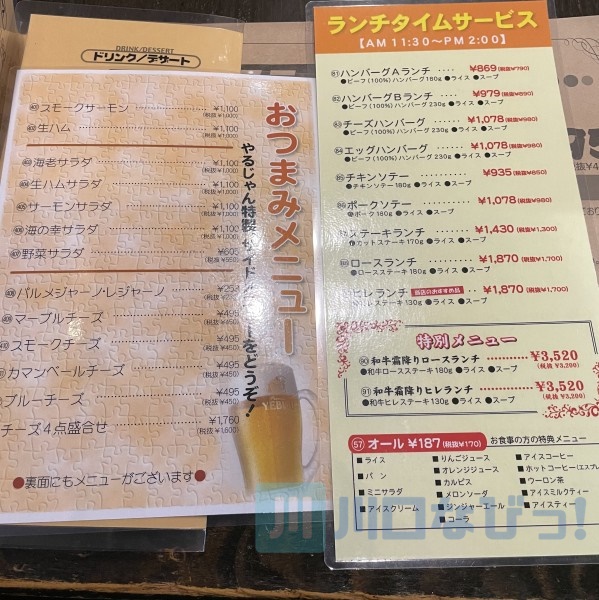 DRINK/DESSERT
ドリンク/デザート
おつまみメニュー
スモークサーモン ¥1,100
(税抜 ¥1,000)
生ハム ¥1,100
(税抜 ¥1,000)
海老サラダ ¥1,100
(税抜 ¥1,000)
生ハムサラダ ¥1,100
(税抜 ¥1,000)
サーモンサラダ ¥1,100
(税抜 ¥1,000)
海の幸サラダ ¥1,100
(税抜 ¥1,000)
野菜サラダ ¥605
(税抜 ¥550)
パルメジャーノ・レジャーノ
マーブルチーズ ¥495
(税抜 ¥450)
スモークチーズ ¥495
(税抜 ¥450)
カマンベールチーズ ¥495
(税抜 ¥450)
ブルーチーズ ¥495
(税抜 ¥450)
チーズ4点盛合せ ¥1,760
(税抜 ¥1,600)
●裏面にもメニューがございます●
ランチタイムサービス
【AM 11:30〜PM 2:00】
81 ハンバーグAランチ ‥‥ ¥869(税抜¥790)
●ビーフ(100%)ハンバーグ180g ●ライス ●スープ
82 ハンバーグBランチ ‥‥ ¥979(税抜¥890)
●ビーフ(100%)ハンバーグ230g ●ライス ●スープ
83 チーズハンバーグ ‥‥ ¥1,078(税抜¥980)
●ビーフ(100%)ハンバーグ230g ●ライス ●スープ
84 エッグハンバーグ ‥‥ ¥1,078(税抜¥980)
●ビーフ(100%)ハンバーグ230g ●ライス ●スープ
85 チキンソテー ‥‥ ¥935(税抜¥850)
●チキンソテー180g ●ライス ●スープ
86 ポークソテー ‥‥ ¥1,078(税抜¥980)
●ポーク180g ●ライス ●スープ
ステーキランチ ‥‥ ¥1,430(税抜¥1,300)
カットステーキ170g ●ライス ●スープ
ロースランチ ‥‥ ¥1,870(税抜¥1,700)
ロースステーキ180g ●ライス ●スープ
ヒレランチ 当店のおすすめ品 ‥ ¥1,870(税抜¥1,700)
ヒレステーキ130g ●ライス ●スープ
特別メニュー
90 和牛霜降りロースランチ ‥‥ ¥3,520
●和牛ロースステーキ180g ●ライス ●スープ (税抜 ¥3,200)
91 和牛霜降りヒレランチ ‥‥ ¥3,520
●和牛ヒレステーキ130g ●ライス ●スープ (税抜 ¥3,200)
57 オール ¥187(税抜¥170) お食事の方の特典メニュー
■ライス ■りんごジュース ■アイスコーヒー
■パン ■オレンジジュース ■ホットコーヒー(エスプレ
■ミニサラダ ■カルピス ■ウーロン茶
■アイスクリーム ■メロンソーダ ■アイスミルクティー
■ジンジャーエール ■アイスティー
■コーラ
川口なびっ!